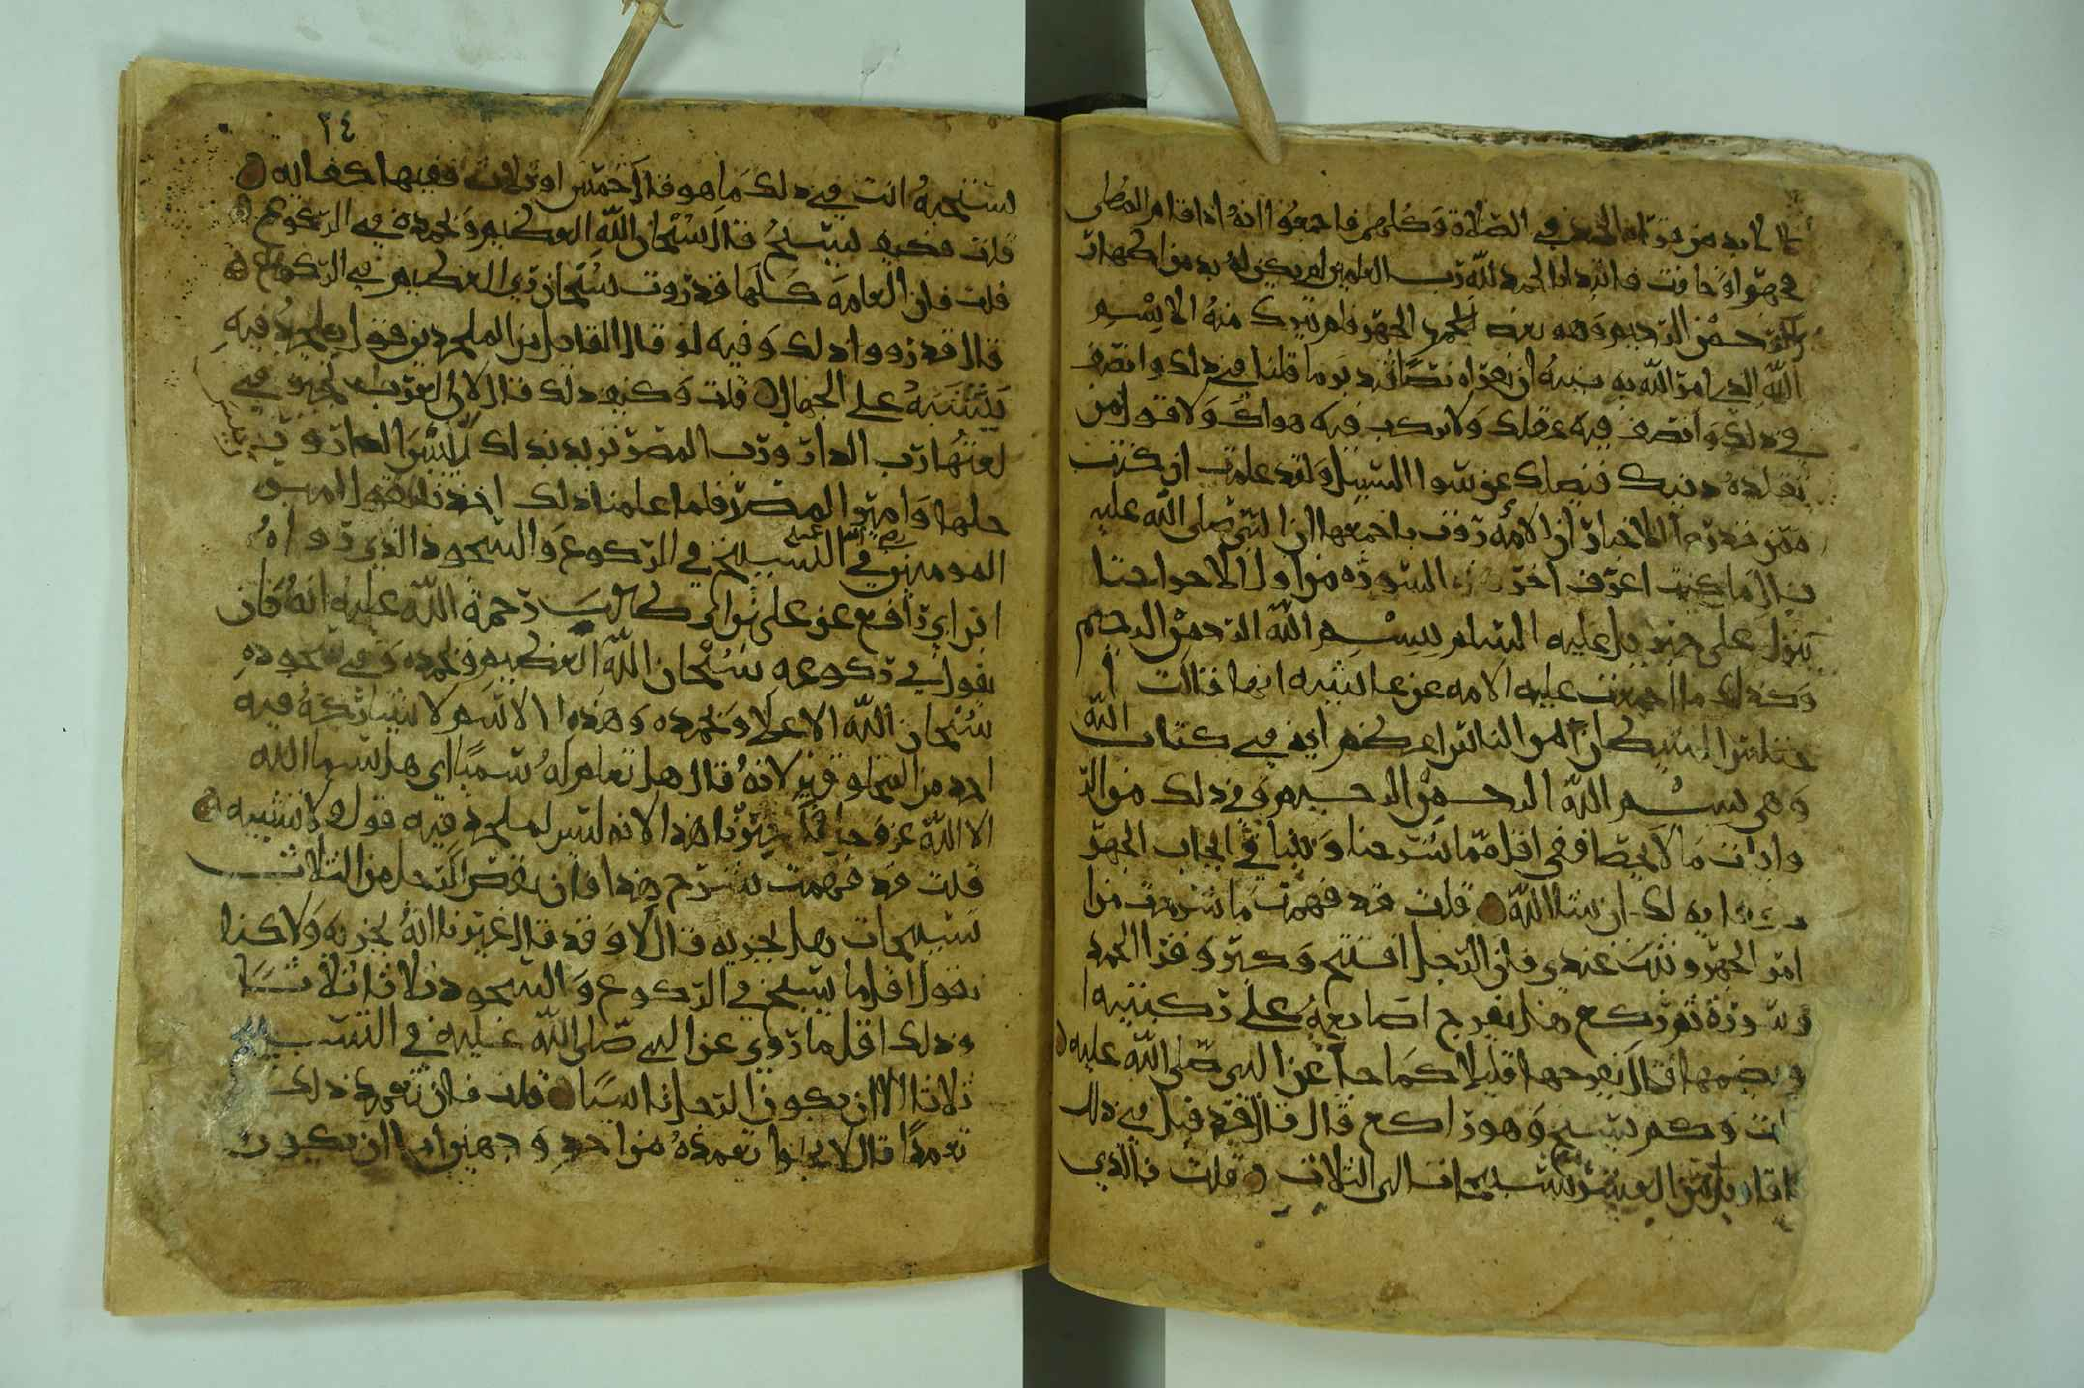 لا بد من قراة الحمد في الصلاة وكلهم فاجمعوا انه اذا قام المصلي
فجهر او خافت فابتدا الحمد لله رب العلمين لم يكن له بد من اجهار
الرحمن الرحيم وهو بعض الحمد الجهر فلم يترك منه الا بسم
الله الذي امر الله به نبيه ان يقراه نصا فتدبر ما قلنا في ذلك وانصف
في ذلك وانصف فيه عقلك ولا تركب فيه هواك ولا قول من
تقلده دينك فيضلك عن سوا السبيل ولقد علمت ان كنت
ممن قد روا الاخبار ان الامه روت باجمعها ان النبي صلى الله عليه
قال ما كنت اعرف اخر السورة من اول الاخرا حتا
ينزل علي جبريل عليه السلم ببسم الله الرحمن الرحيم
وكذلك ما اجمعت عليه الامه عن عايشه انها قالت
اختلس الشيطان من الناس اعظم ايه في كتاب الله
وهي بسم الله الرحمن الرحيم وفي ذلك من الر
وايات ما لا يحصا ففي اقل مما شرحنا وبينا في ايجاب الجهر
كفايه لك ان شا الله قلت قد فهمت ما شرحت من
امر الجهر وثبت عندي فان الرجل افتتح وكبر وقرا الحمد
وسورة ثم ركع هل يفرج اصابعه على ركبتيه ا
و يضمها قال يفرجها قليلا كما جا عن النبي صلى الله عليه
قلت وكم يسبح وهو راكع قال قال قد قيل في ذلك
اقاويل من العشر تسبيحات الى الثلاث قلت فالذي
٢٤
تستحبه انت في ذلك ما هو قال خمس او ثلاث ففيها كفايه
قلت فكيف يسبح قال سبحان الله العظيم وبحمده في الركوع
قلت فان العامة كلها قد روت سبحان ربي العظيم في الركوع
قال قد رووا ذلك وفيه لو قال القايل من الملحدين قول يلحد فيه
يشتبه على الجهال قلت وكيف ذلك قال لان العرب تجيز في
لغتها رب الدار ورب المصر تريد بذلك رييس الدار ورب
حلها وامير المصر فلما علمنا ذلك اخذنا بقول امير
المومنين في التسبيح في الركوع والسجود الذي رواه
ابن ابي رافع عن علي بن ابي طالب رحمة الله عليه انه كان
يقول في ركوعه سبحان الله العظيم وبحمده وفي سجوده
سبحان الله الاعلا وبحمده وهذا الاسم لا يشاركه فيه
احد من المخلوقين لانه قال هل تعلم له سميا اي هل تسما الله
الا الله عز وجل فاخترنا هذا لانه ليس لملحد فيه قول ولا تشبيه
قلت قد فهمت شرح هذا فان نقص الرجل من الثلاث
تسبيحات هل يجزيه قال لا وقد قال غيرنا انه يجزيه ولاكنا
نقول اقل ما يسبح في الركوع والسجود ثلاثا ثلاثا
وذلك اقل ما روي عن النبي صلى الله عليه في التسبيح
ثلاثا الا ان يكون الرجل ناسيا قلت فان تعمد ذلك
تعمدا قال لا يخلوا تعمده من احد وجهين اما ان يكون